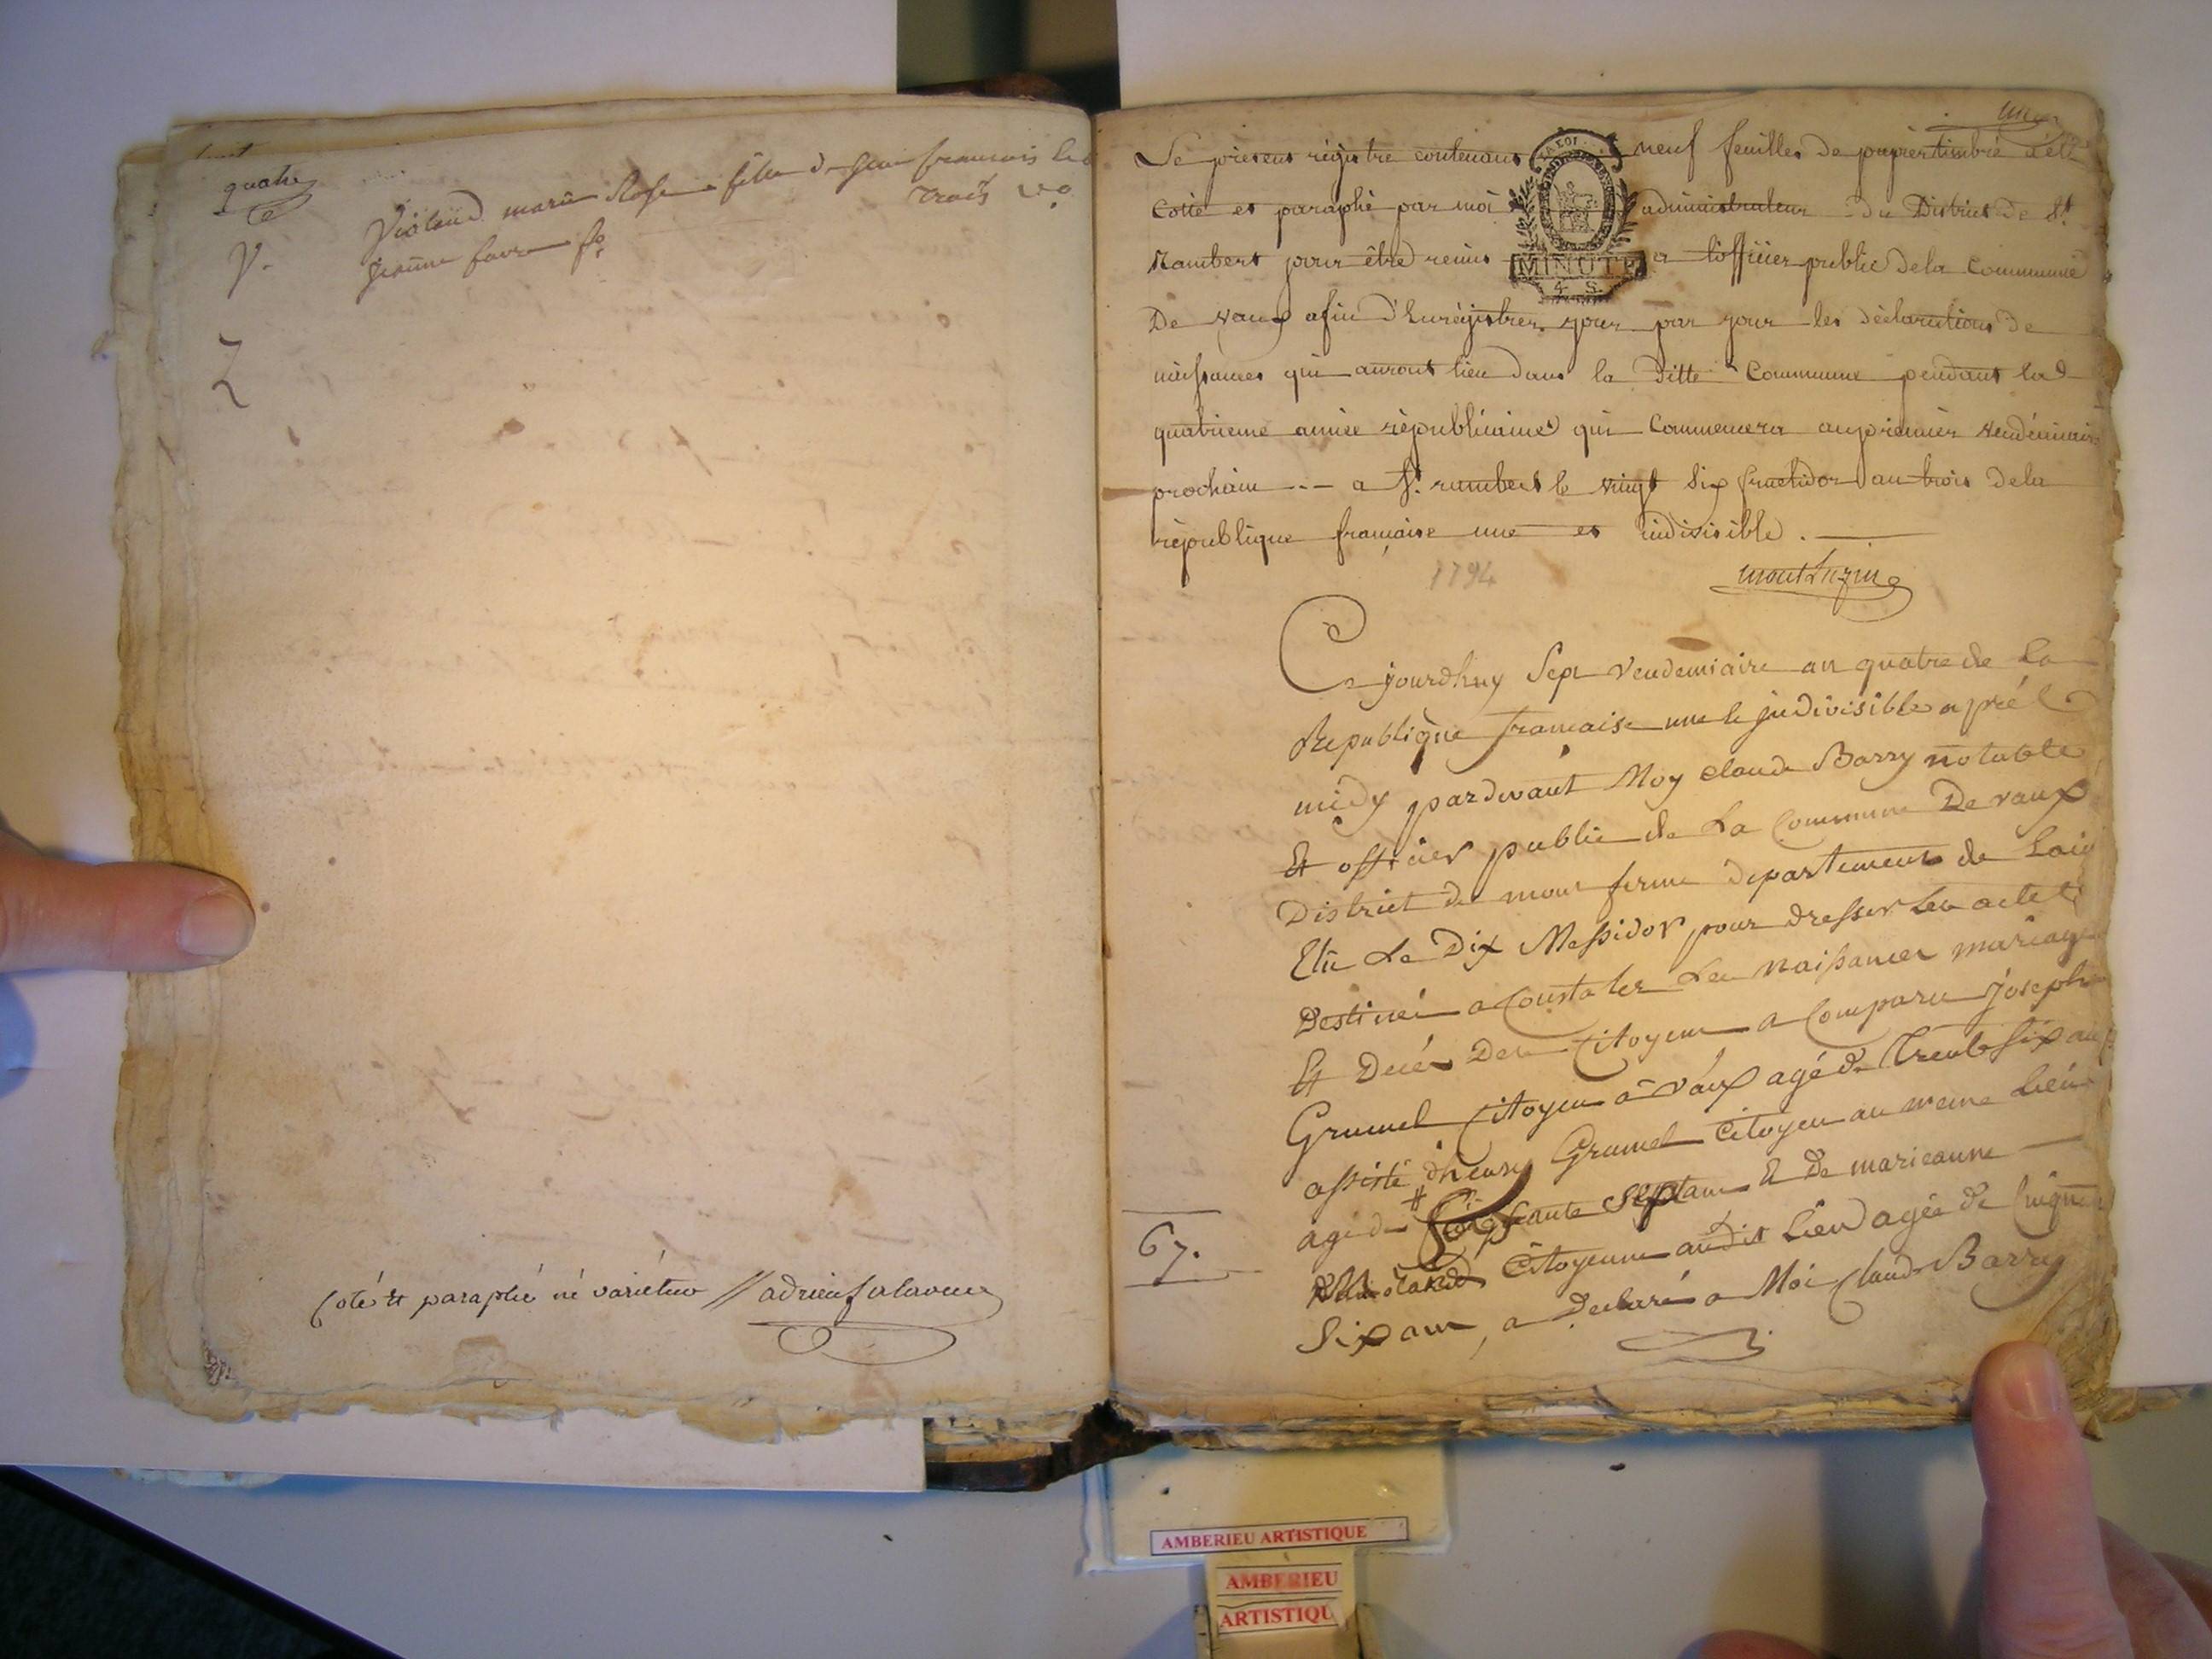 quatre
V. Violand marie Rose fille de jean francois &
jeanne favre fo. trois vo.
Z
Coté et paraphé né variétur // adrien
une
Le present régistre contenant neuf feuilles de papier timbré a été
Cotté et paraphé par moi administrateur du District de St.
Rambert pour être remis a l'officier public de la Commune
De vaux afin d'Enrégistrer jour par jour les déclarations de
naissances qui auront lieu dans la ditte Commune pendant la
quatrieme année républicaine qui Commencera au premier vendémiaire
prochain --- a St. rambert le vingt six fructidor an trois de la
république française une et indivisible.
LA LOI
MINUTE
4. S.
1794
montluzin
Ce jourdhuy Sept Vendemiaire an quatre de La
Republique francaise une & jndivisible apré
midy pardevant Moy claude Barry notable
Et officier public de La Commune De vaux
District de mont ferme departement de Lain
Elu Le Dix Messidor pour dresser Les actes
Destinés a Constater Les naissances mariages
Et Decés Des Citoyens a Comparu joseph
Grumel Citoyen a Vaux agé de trente six ans
assisté dheusy Grumel Citoyen au meme Lieu
agé de # soixante Sept ans & de marieanne
Violand Citoyenne audit Lieu agée de Cinquante
67.
Six ans, a Declaré a Moi Claude Barry
AMBERIEU ARTISTIQUE
AMBERIEU
ARTISTIQU